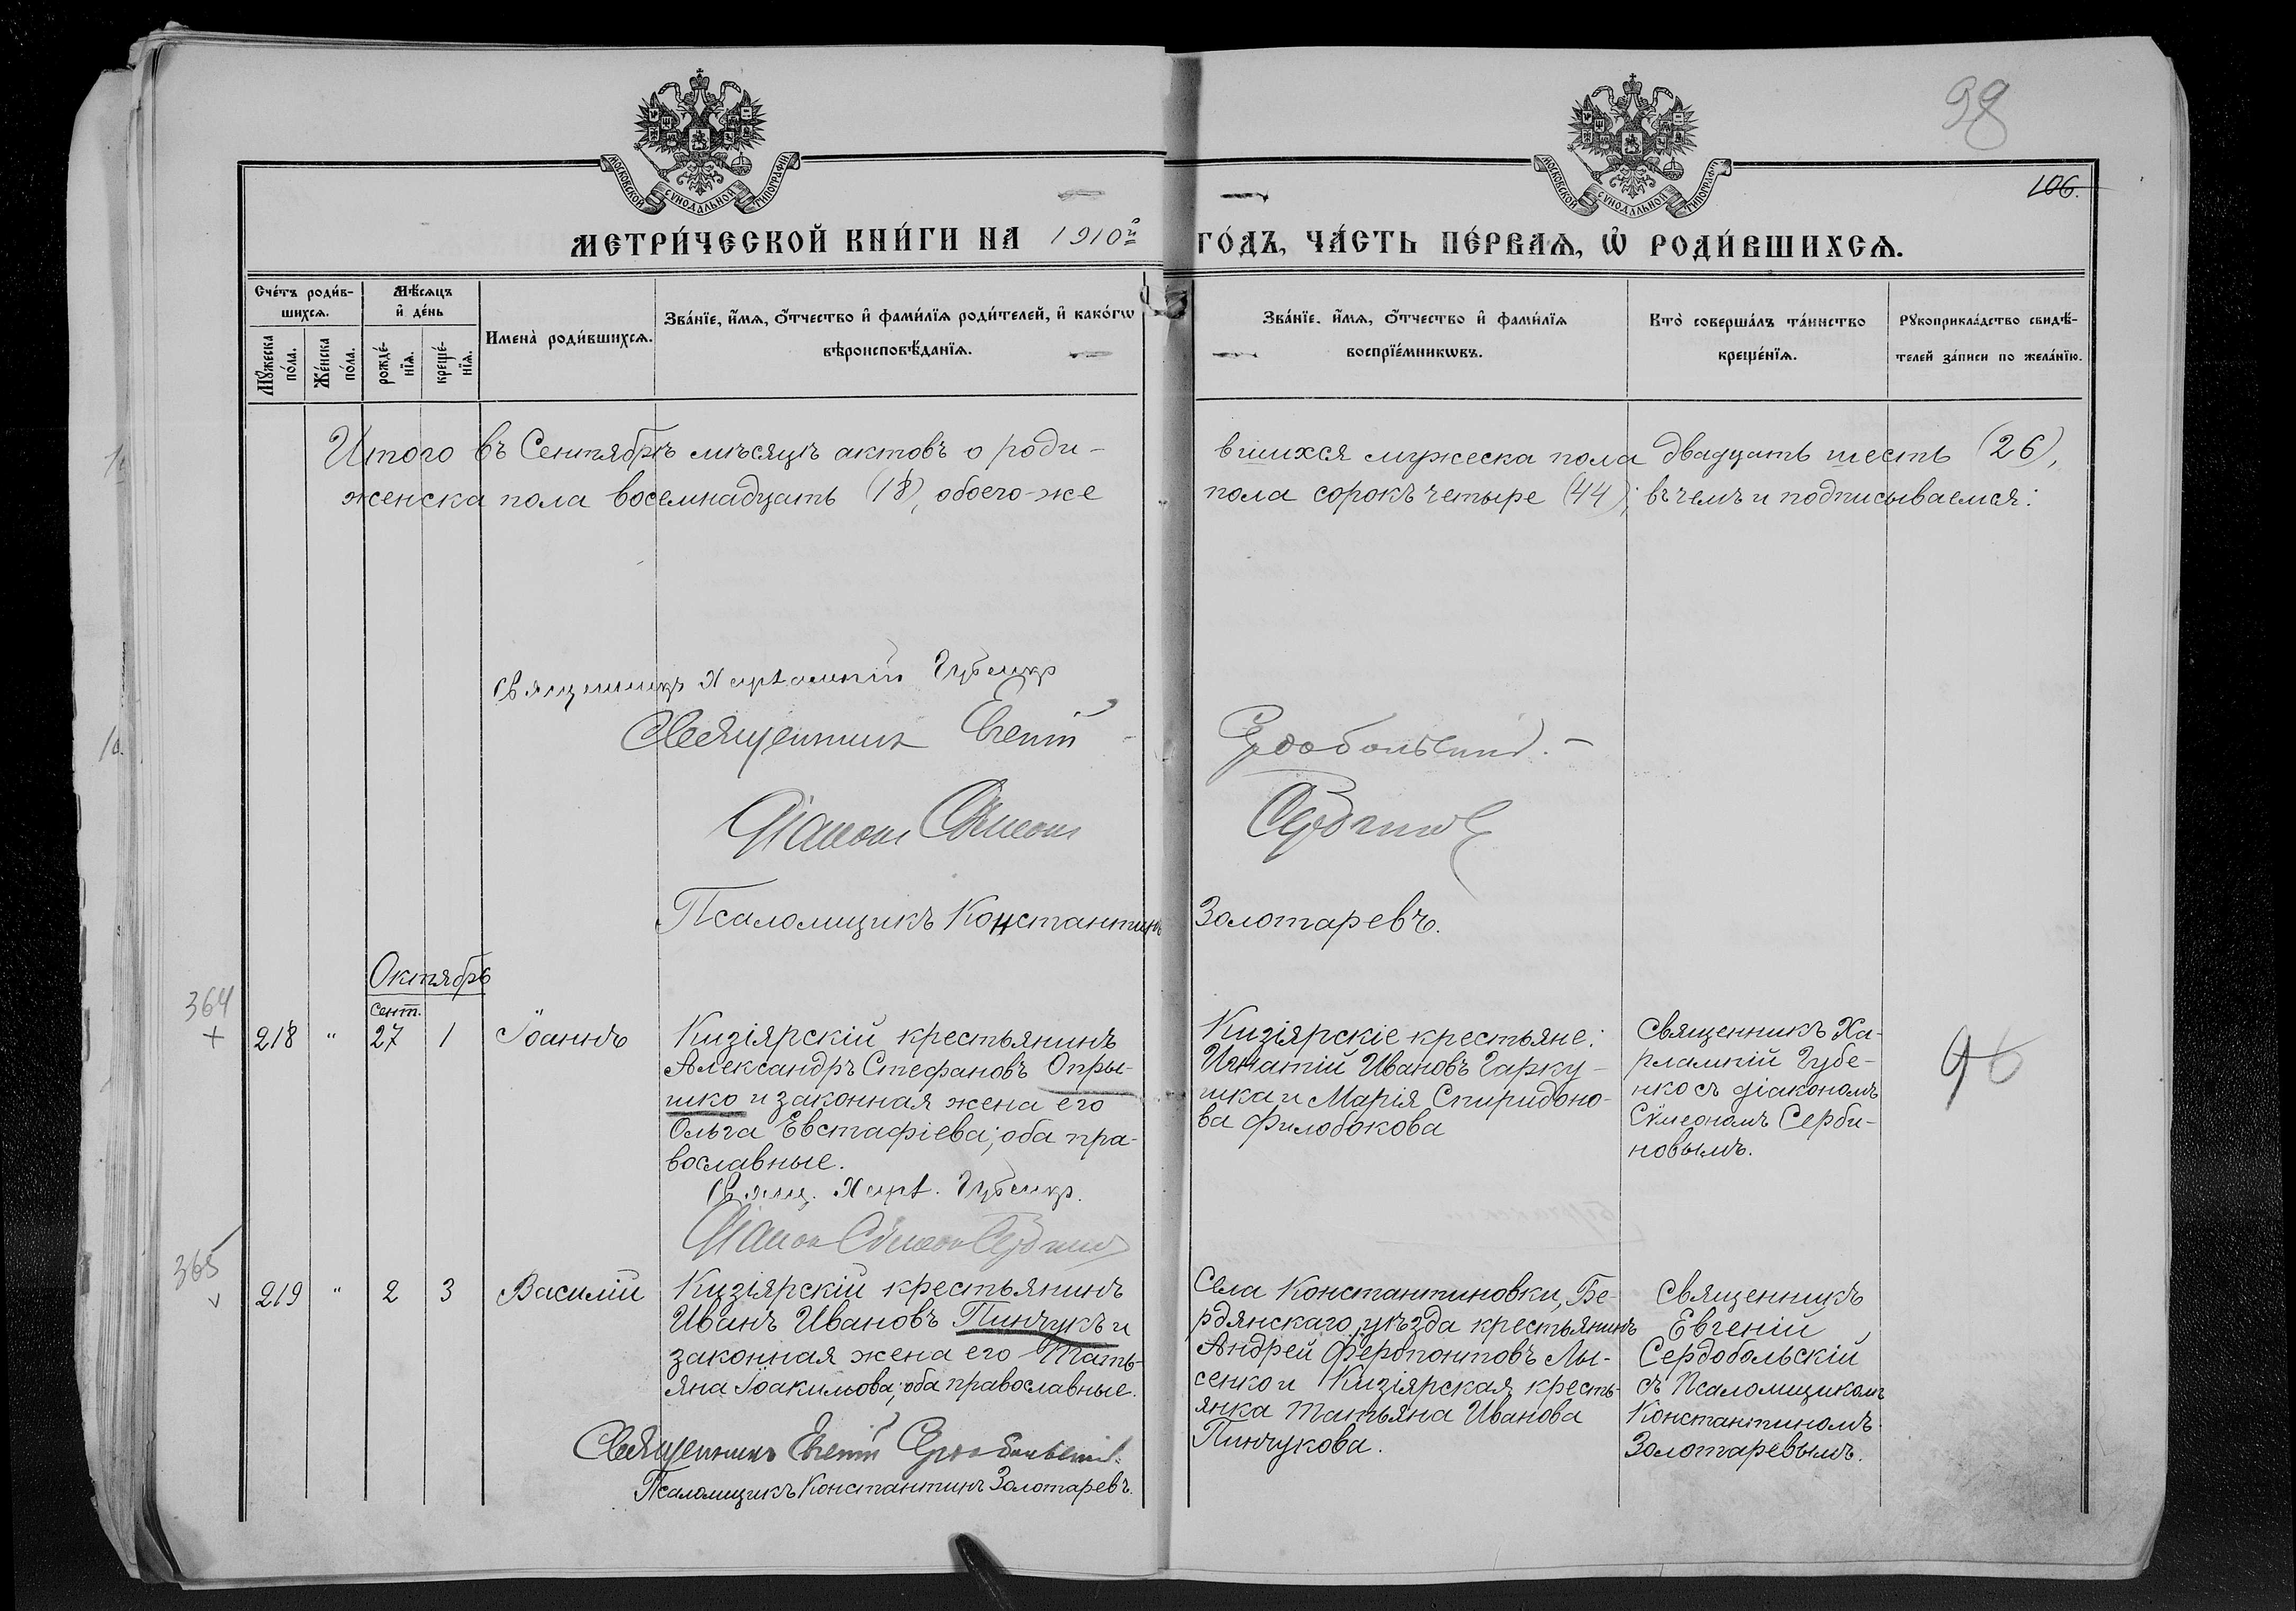 98
106.
МОСКОВСКОЙ СѴНОДАЛЬНОЙ ТИПОГРАФІИ
МОСКОВСКОЙ СѴНОДАЛЬНОЙ ТИПОГРАФІИ
МЕТРИ́ЧЕСКОЙ КНИ́ГИ НА 1910й ГО́ДЪ, ЧА́СТЬ ПЕ́РВАѦ, Ѡ РОДИ́ВШИХСѦ.
Сче́тъ роди́в-
шихсѧ.
Мꙋ́жеска по́ла.
Же́нска по́ла.
Мѣ́сѧцъ
и҆ де́нь
рожде́-
нїѧ.
креще́-
нїѧ.
Имена̀ роди́вшихсѧ.
Зва́нїе, и҆́мѧ, ѻ҆́тчество и҆ фами́лїѧ роди́телей, и҆ како́гѡ
вѣроисповѣ́данїѧ.
Зва́нїе. и҆́мѧ, ѻ҆́тчество и҆ фами́лїѧ
воспрїе́мникѡвъ.
Кто̀ соверша́лъ та́инство
креще́нїѧ.
Рꙋкоприкла́дство свидѣ́-
телей за́писи по жела́нїю.
Итого въ Сентябрѣ мѣсяцѣ актовъ о роди-
вшихся мужеска пола двадцать шесть (26),
женска пола восемнадцать (18), обоего-же
пола сорокъ четыре (44); въ чемъ и подписываемся:
Священникъ Харлампій Губенко
Священникъ Евгеній Сердобольскій. -
Діаконъ Сѵмеонъ Сербиновъ
Псаломщикъ Константинъ Золотаревъ.
Октябрь
364
+
218 " сент. 27 1 Іоаннъ
Кизіярскій крестьянинъ
Александръ Стефановъ Опры-
шко и законная жена его
Ольга Евстафіева; оба пра-
вославные.
Свящ. Харл. Губенко.
Діаконъ Сѵмеонъ Сербиновъ
Кизіярскіе крестьяне:
Игнатій Ивановъ Гарку-
шка и Марія Спиридоно-
ва Филобокова
Священникъ Ха-
рлампій Губе-
нко съ діакономъ
Сѵмеономъ Серби-
новымъ.
365
v
219 " 2 3 Василій
Кизіярскій крестьянинъ
Иванъ Ивановъ Пинчукъ и
законная жена его Тать-
яна Іоакимова; оба православные.
Священникъ Евгеній Сердобольскій.
Псаломщикъ Константинъ Золотаревъ.
Села Константиновки, Бе-
рдянскаго уѣзда крестьянинъ
Андрей Ферапонтовъ Лы-
сенко и Кизіярская кресть-
янка Татьяна Иванова
Пинчукова.
Священникъ
Евгеній
Сердобольскій
съ Псаломщикомъ
Константиномъ
Золотаревымъ.